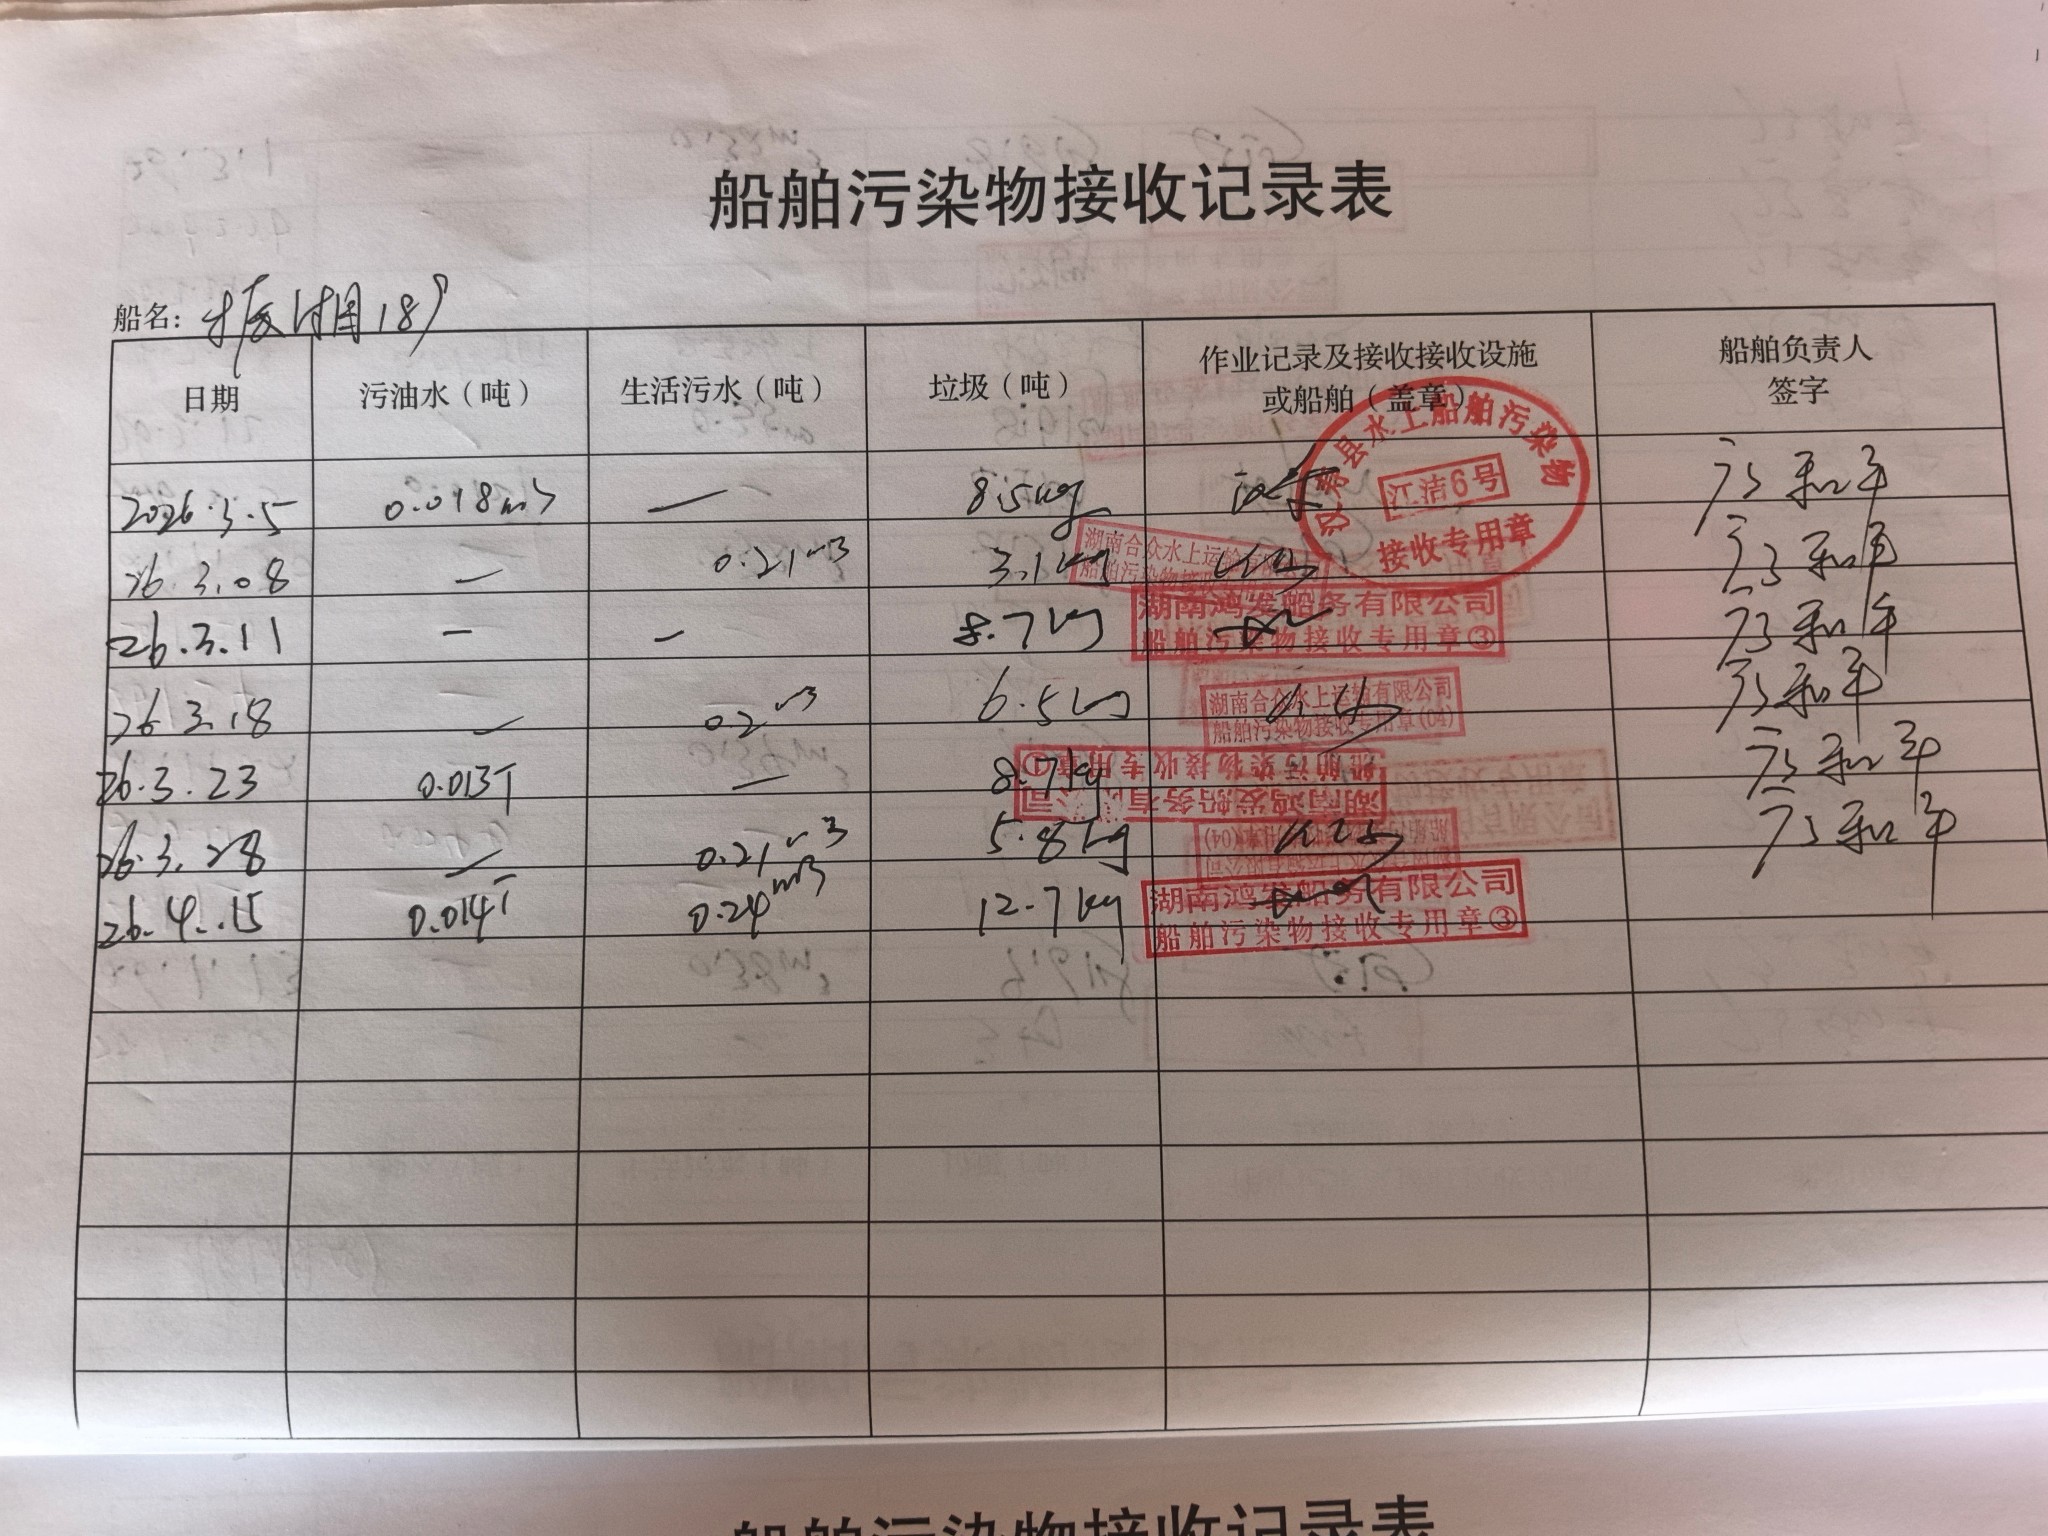 船舶污染物接收记录表
船名：振湘189
日期 污油水（吨） 生活污水（吨） 垃圾（吨） 作业记录及接收接收设施或船舶（盖章） 船舶负责人签字
2026.3.5 0.018m3 — 8.5kg
汉寿县水上船舶污染物
江洁6号
接收专用章
26.3.08 — 0.21m3 3.1kg
湖南合众水上运输有限公司
船舶污染物接收专用章
26.3.11 — — 8.7kg
湖南鸿发船务有限公司
船舶污染物接收专用章③
26.3.18 — 0.2m3 6.5kg
湖南合众水上运输有限公司
船舶污染物接收专用章(04)
26.3.23 0.013T — 8.7kg
湖南鸿发船务有限公司
船舶污染物接收专用章①
26.3.28 — 0.21m3 5.8kg
26.4.15 0.014T 0.24m3 12.7kg
湖南鸿发船务有限公司
船舶污染物接收专用章③
船舶污染物接收记录表